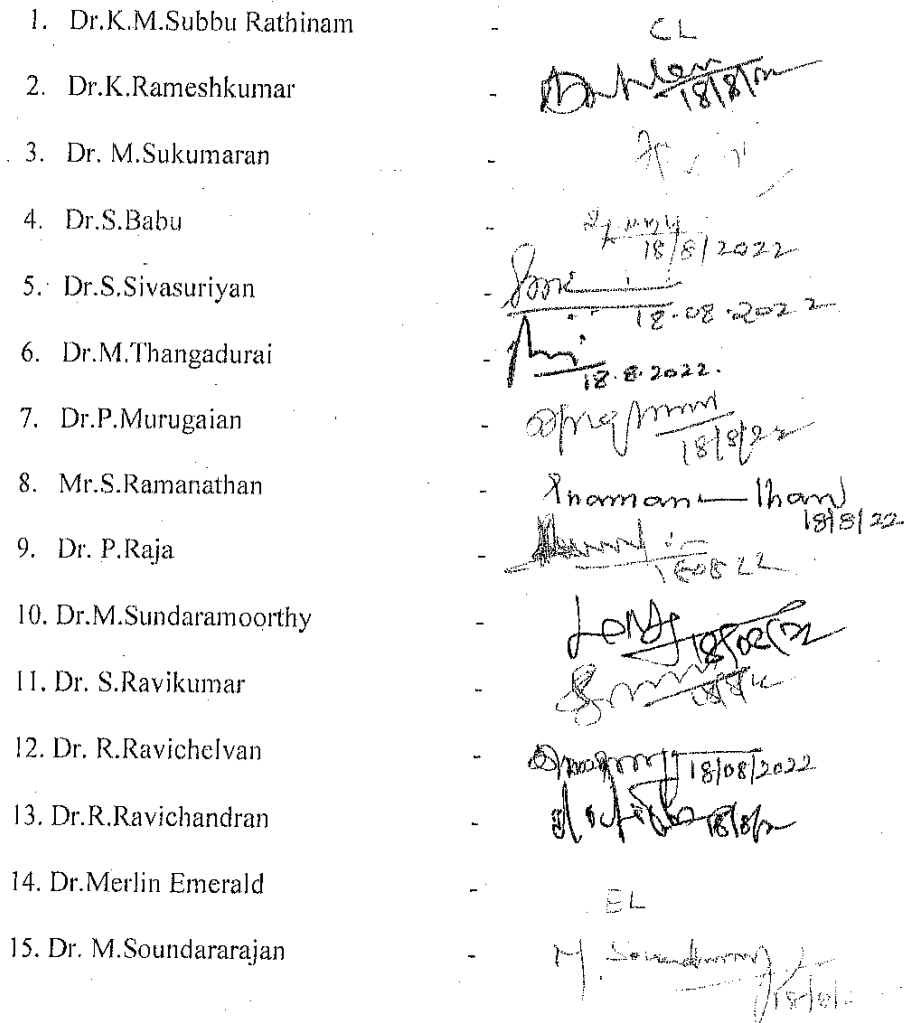 1. Dr.K.M.Subbu Rathinam - CL
2. Dr.K.Rameshkumar - 18/8/22
3. Dr. M.Sukumaran -
4. Dr.S.Babu - 18/8/2022
5. Dr.S.Sivasuriyan - 18.08.2022
6. Dr.M.Thangadurai - 18.8.2022.
7. Dr.P.Murugaian - 18/8/22
8. Mr.S.Ramanathan - 18/8/22
9. Dr. P.Raja - 18 08 22
10. Dr.M.Sundaramoorthy - 18/08/22
11. Dr. S.Ravikumar -
12. Dr. R.Ravichelvan - 18/08/2022
13. Dr.R.Ravichandran - 18/8/22
14. Dr.Merlin Emerald - EL
15. Dr. M.Soundararajan - M.